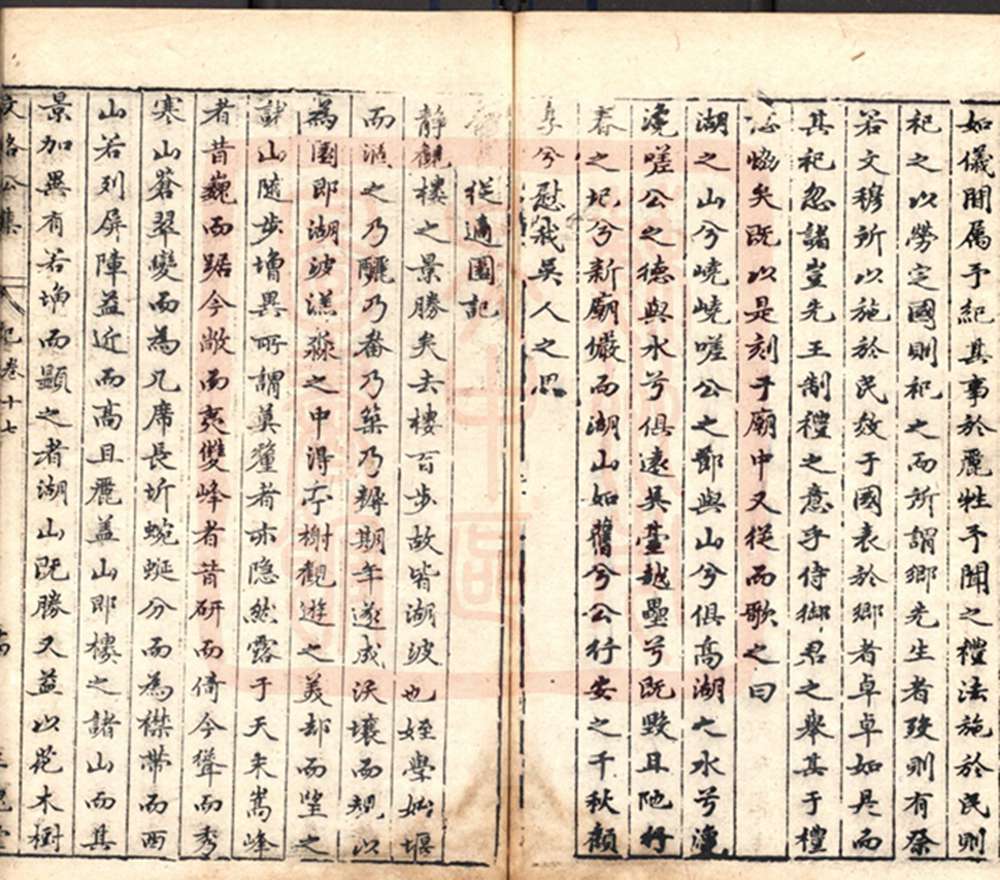 如儀間属予紀其事於麗牲予聞之禮法施於民則
祀之以勞定國則祀之而所謂鄉先生者歿則有祭
若文穆所以施於民效于國表於鄉者卓卓如是而
其祀忽諸豈先王制禮之意乎侍御君之舉其于禮
恊矣既以是刻于廟中又從而歌之曰
湖之山兮嶢嶢嗟公之節與山兮俱高湖之水兮
嗟公之德與水兮俱遠吳臺越壘兮既毀且陁
春之圯兮新廟儼而湖山如舊兮公行安之千秋顏
兮慰我吳人之思
從適園記
靜觀樓之景勝矣去樓百步故皆湖波也姪學始堰
而湏之乃釃乃畚乃築乃耨期年遂成沃壤而規以
為園即湖波渼淼之中得亭榭觀遊之美却而望之
諸山隨步增異所謂莫釐者亦隐然露于天末嵩峰
者昔巍而踞今敞而夷雙峰者昔研而倚今聳而秀
寒山蒼翠變而為几席長圻蜿蜒分而為襟帶而西
山若列屏陣益近而高且麗盖山即樓之諸山而其
景加異有若埆而顯之者湖山既勝又益以花木樹
文恪公集 記卷十七